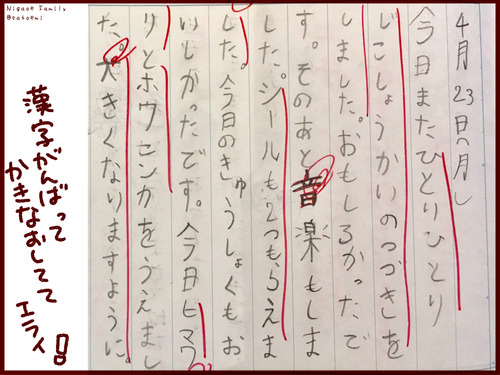 Nigaoe Family
@satoemi
4月23日(月)
今日またひとりひとり
じこしょうかいのつづきを
しました。おもしろかったで
す。そのあと音楽もしま
した。シールも2つもらえま
した。今日のきゅうしょくもお
いしかったです。今日ヒマワ
リとホウセンカをうえまし
た。大きくなりますように。
漢字がんばって
かきなおしてて
エライ!